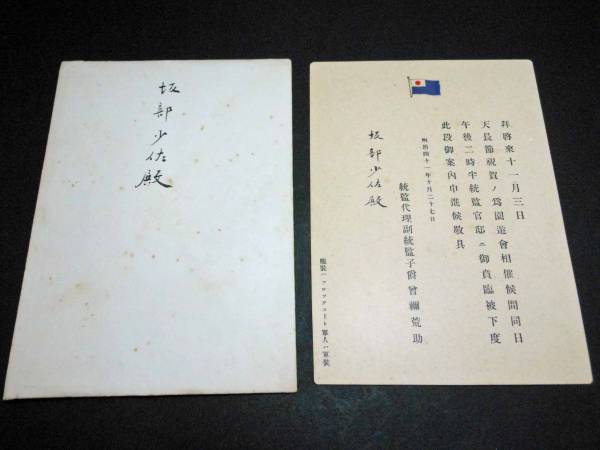 坂部少佐殿
拜啓來十一月三日
天長節祝賀ノ爲園遊會相催候間同日
午後二時半統監官邸ニ御貴臨被下度
此段御案內申進候敬具
明治四十一年十月二十七日
統監代理副統監子爵曾禰荒助
坂部少佐殿
服裝ハフロックコート軍人ハ軍裝